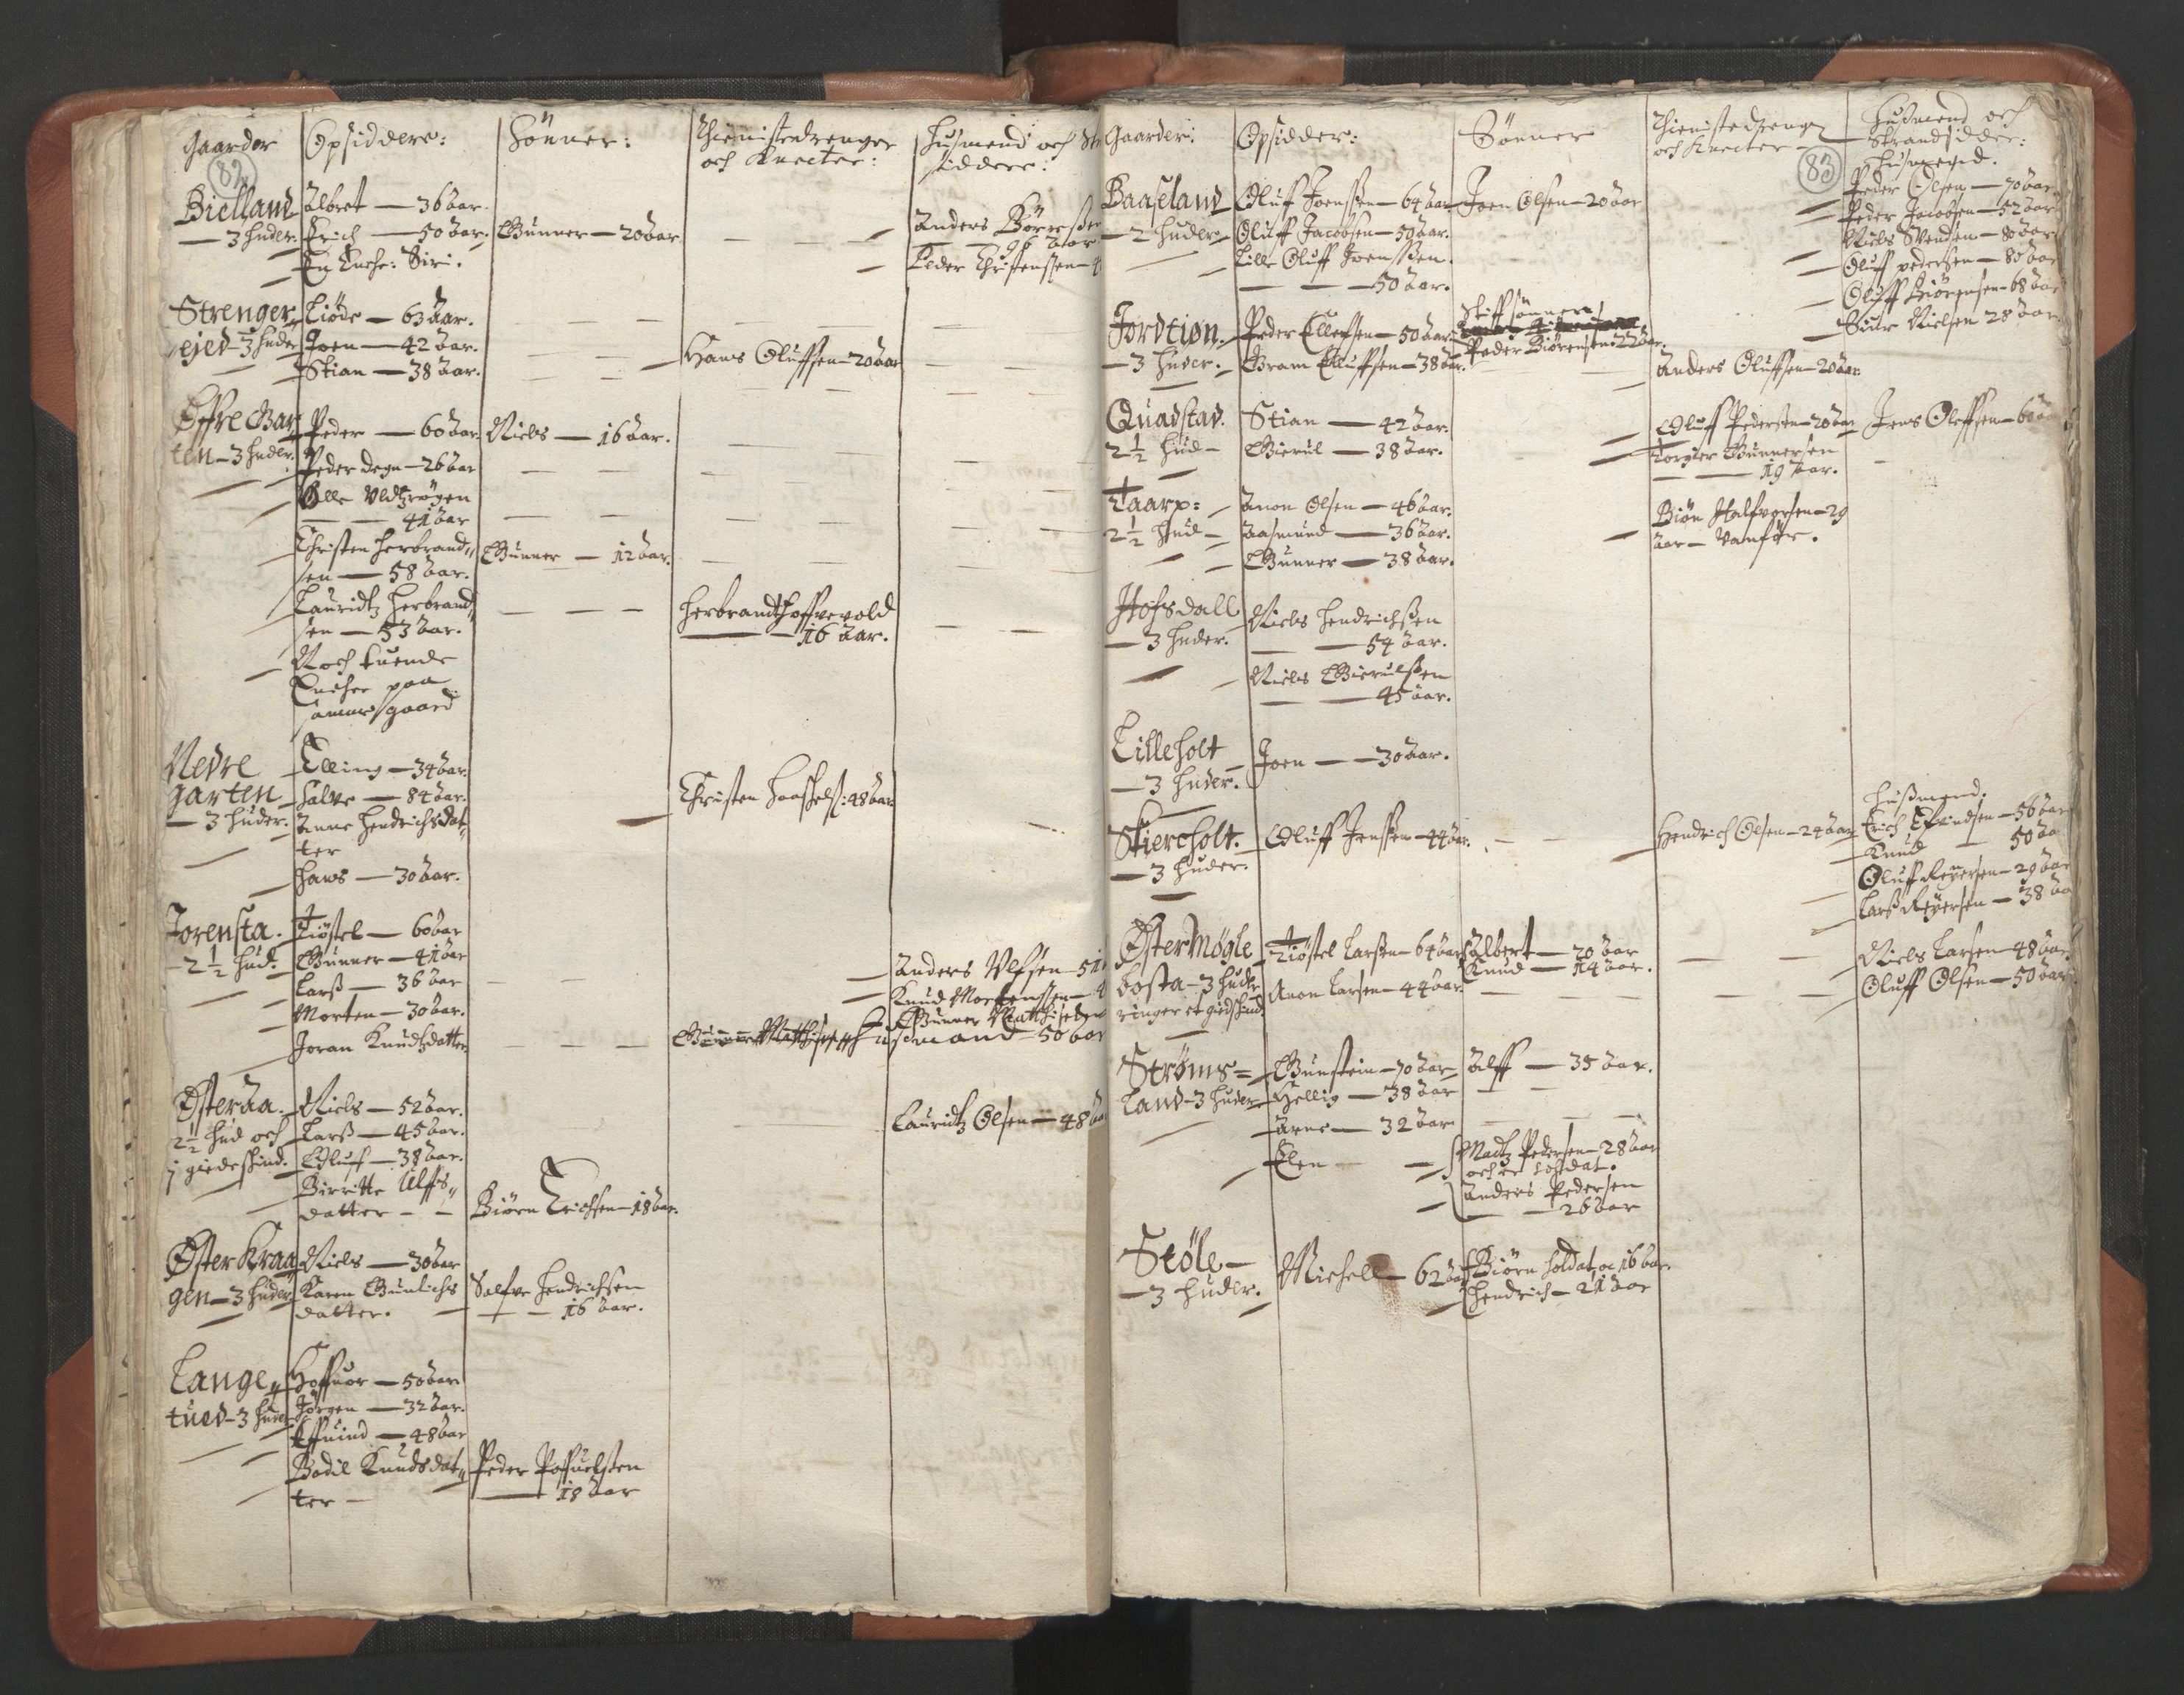 82
Gaarder
Opsiddere:
Sönner:
Thienistedrenger
och Knecter:
Husmend och
siddere:
Bielland
3 huder.
Albret — 36 aar.
Erich — 50 aar.
En Enche: Siri.
Gunner — 20 aar
Anders
aar
Peder Christenssen
Strenger
ejed — 3 huder
Liöde — 63 aar.
Joen — 42 aar.
Stian — 38 aar.
Hans Oluffsen — 20 aar
Öffre Gar
ten — 3 huder.
Peder — 60 aar.
Peder degn — 26 aar
Olle
41 aar
Christen Herbrand
sen — 58 aar.
Lauridtz Herbrand
sen — 53 aar.
Noch tuende
Encher paa
samme gaard
Niels — 16 aar.
Gunner — 12 aar.
Herbrandt
16 aar.
Nedre
garten
3 huder.
Elling — 34 aar.
Halve — 84 aar.
Anne Hendrichsdat
ter
Hans — 30 aar.
Christen 48 aar
Jorensta.
2 1/2 hud.
Tiöstel — 60 aar
Gunner — 41 aar
Larss — 36 aar
Morten — 30 aar.
Joran Knudtzdatter
Anders Ulfsen — 51
Knud Mortenssen — 4
Gunner
husmand — 50 aar
Österaa.
2 1/2 hud och
j giedeskind.
Niels — 52 aar.
Larss — 45 aar.
Oluf — 38 aar.
Birritte Ulffs
datter
Biörn Erichsen — 18 aar.
Lauridtz Olsen — 48 aar
Öster Kraa
gen — 3 huder
Niels — 30 aar
Karen Gunlichs
datter.
Salfve Hendrichsen
16 aar.
Lange
tued — 3 huder
Hoffuor — 50 aar
Jörgen — 32 aar.
Effuind — 48 aar
Bodil Knudsdat
ter
Peder
18 aar
83
Gaarder:
Opsidder:
Sönner
Thienistedrenge
och Knecter
Husmend och
Strandsidder:
Baaseland
2 huder.
Oluf Joenssen — 64 aar
Oluff Jacobsen — 50 aar.
Lille Oluff Joenssen.
50 aar.
Joen Olsen — 20 aar
Peder Olsen — 70 aar
Peder Jacobsen — 52 aar
Niels Svendsen — 80 aar
Oluff pedersen — 80 aar
Oluff Biörnsen — 68 aar
Siur Nielsen 28 aar.
Jordtion.
3 huder.
Peder Ellefsen — 50 aar
Gram Elluffsen — 38 aar.
Stiffsönner
Peder Biörensen 22 aar.
Anders Oluffsen — 20 aar
Quadstad.
2 1/2 hud
Stian — 42 aar.
Gierul — 38 aar.
Oluff Pedersen — 20 aar
Torgier Gunnersen
19 aar.
Jens Oleffsen — 60 aar
Taarp:
2 1/2 hud
Anon Olsen — 46 aar.
Aasmund — 36 aar.
Gunner — 38 aar.
Biön Halfvorsen — 29
aar — Vanför.
Hofsdall
3 huder.
Niels Hendrichssen
54 aar.
Niels Gierulssen
45 aar.
Lilleholt
3 huder.
Joen — 30 aar.
Skiercholt.
3 huder.
Oluff Jenssen — 44 aar.
Hendrich Olsen — 24 aar
Hussmend.
Erich Efvindsen — 56 aar
Knud — 50 aar
Oluff Reyersen — 29 aar
Larss Reyersen — 38 aar
Öster Mögle
bosta — 3 huder
ringer et giedskind
Tiöstel Larssen — 64 aar
Anon Larsen — 44 aar.
Albert — 20 aar
Knud — 14 aar.
Niels Larsen — 48 aar.
Oluff Olsen — 50 aar
Ströms=
land — 3 huder
Gunstein — 70 aar
Hellig — 38 aar
Arne — 32 aar
Elen
Alff — 35 aar.
Madtz Pedersen — 28 aar
och er soldat.
Anders Pedersen
26 aar
Stöle
3 huder.
Michell — 62 aar
Biörn soldat, 16 aar.
Hendrich — 21 aar